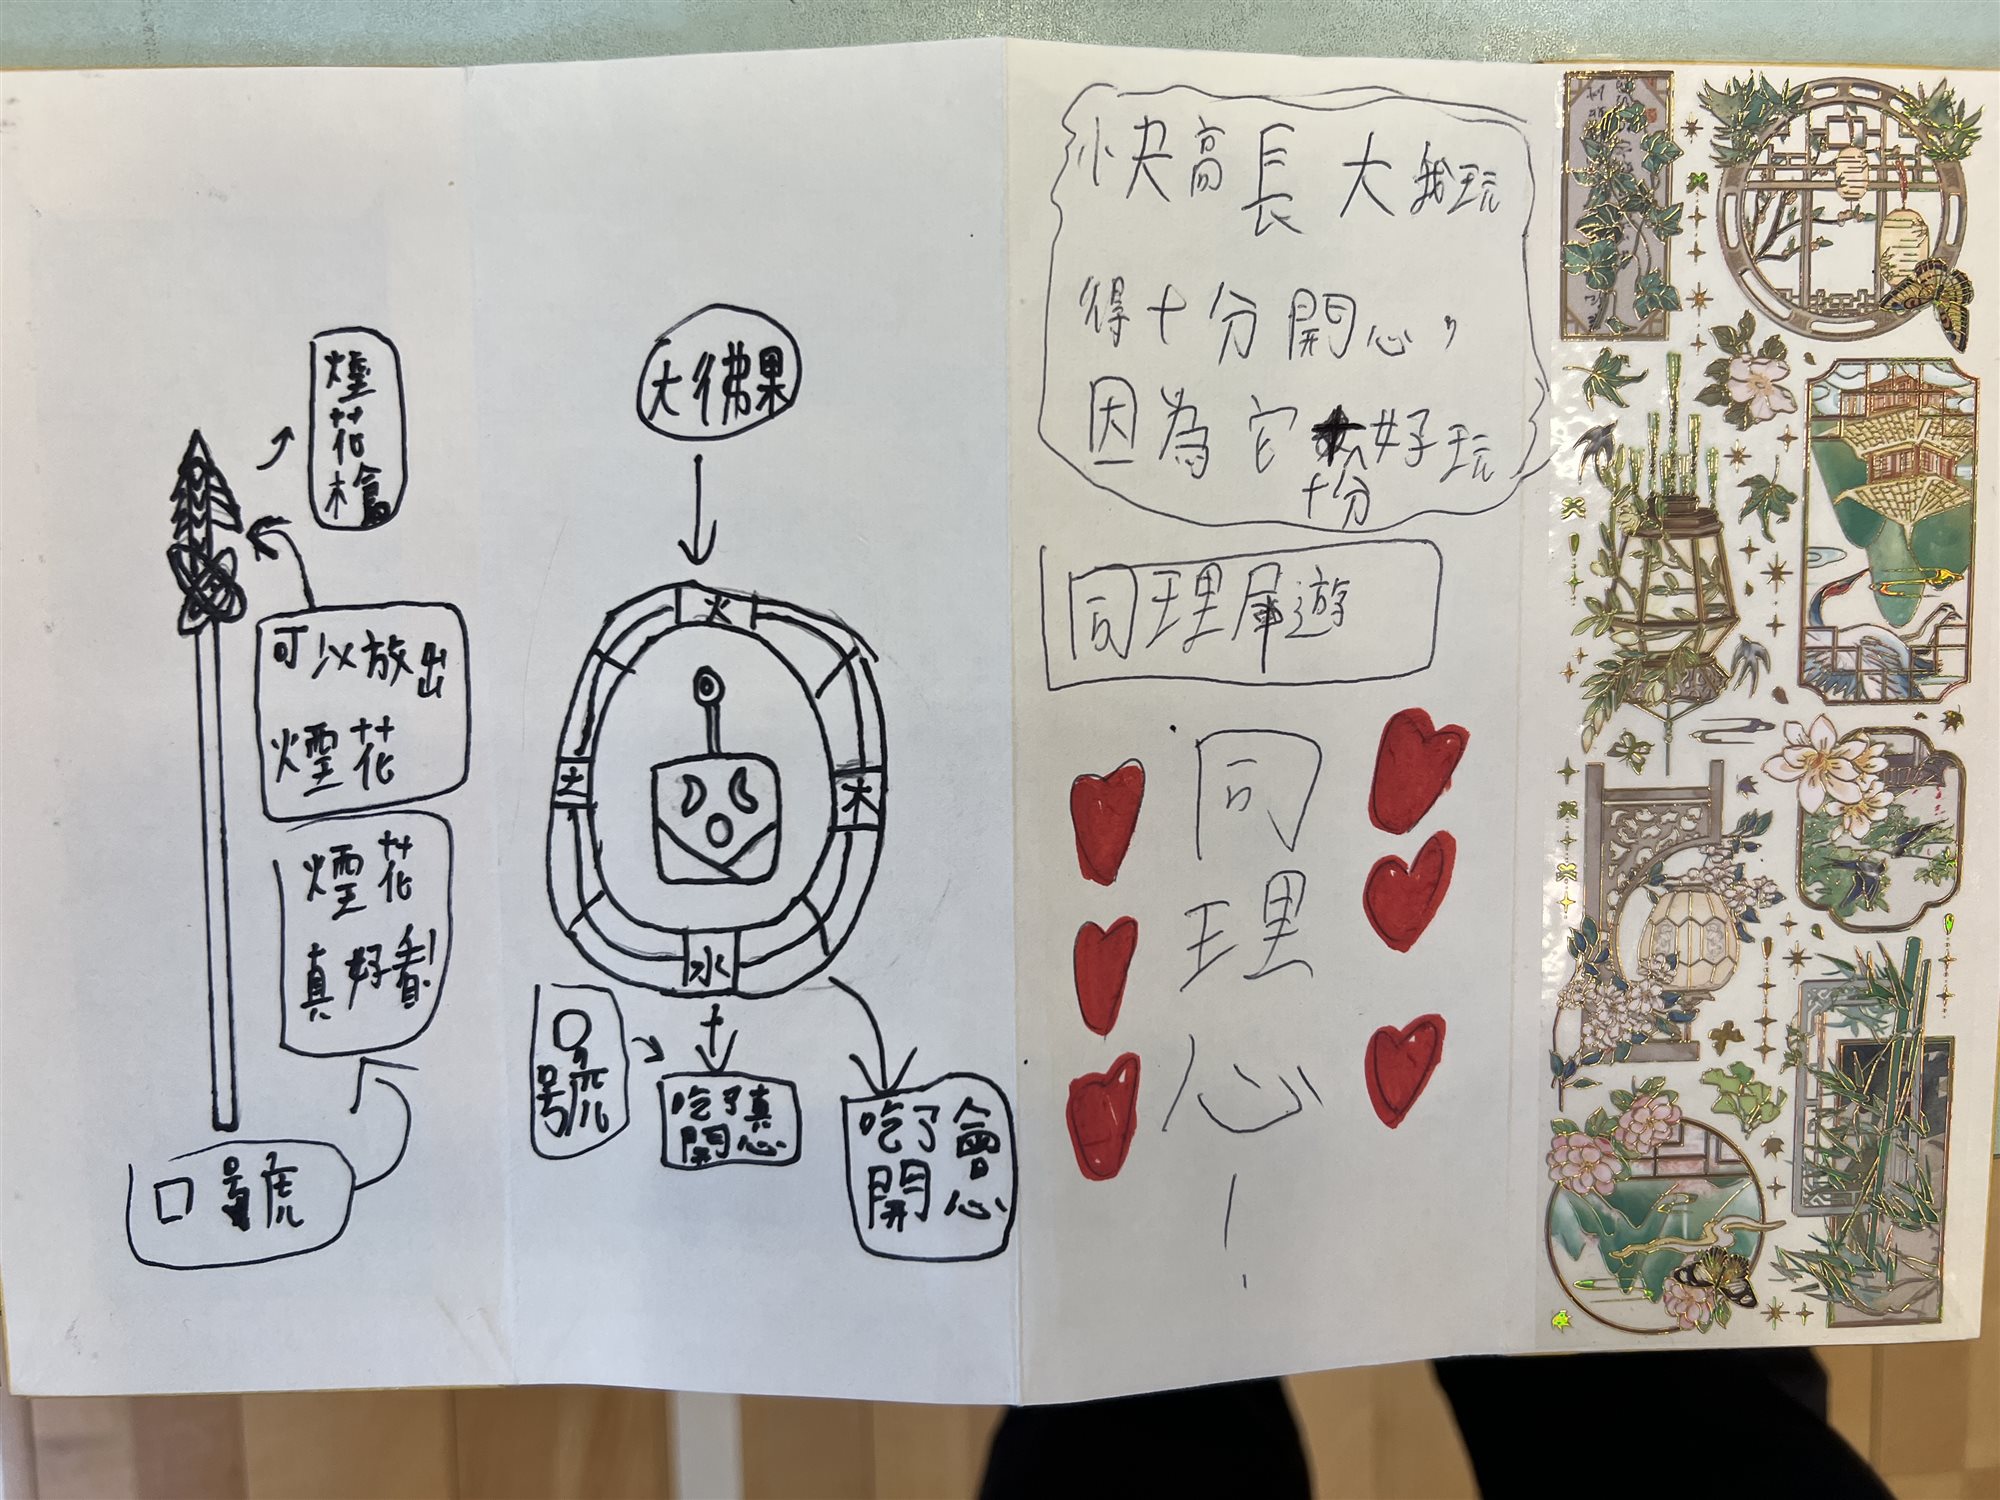 煙花槍
可以放出
煙花
煙花
真好看
口號
大彿果
火
土
木
水
口號
吃了真
開心
吃了會
開心
快高長大我玩
得十分開心，
因為它十分好玩
同理犀遊
同理心！